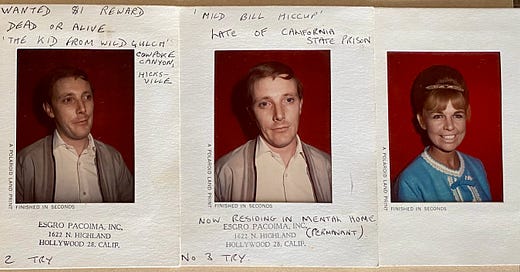 WANTED $1 REWARD
DEAD OR ALIVE
'THE KID FROM WILD GULCH'
COWPOKE
CANYON,
HICKS-
VILLE
A POLAROID LAND PRINT
FINISHED IN SECONDS
ESGRO PACOIMA, INC.
1622 N. HIGHLAND
HOLLYWOOD 28, CALIF.
2 TRY
'MILD BILL HICCUP'
LATE OF CAMFORNIA
STATE PRISON
A POLAROID LAND PRINT
FINISHED IN SECONDS
NOW RESIDING IN MENTAL HOME
(PERMANANT)
ESGRO PACOIMA, INC.
1622 N. HIGHLAND
HOLLYWOOD 28, CALIF.
No 3 TRY.
A POLAROID LAND PRINT
FINISHED IN SECONDS